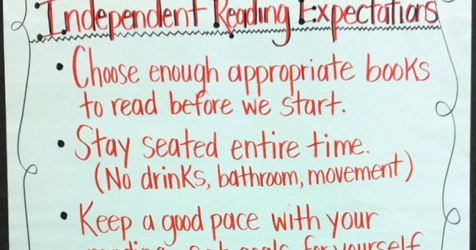 Independent Reading Expectations
• Choose enough appropriate books
to read before we start.
• Stay seated entire time.
(No drinks, bathroom, movement)
• Keep a good pace with your
goals for yourself